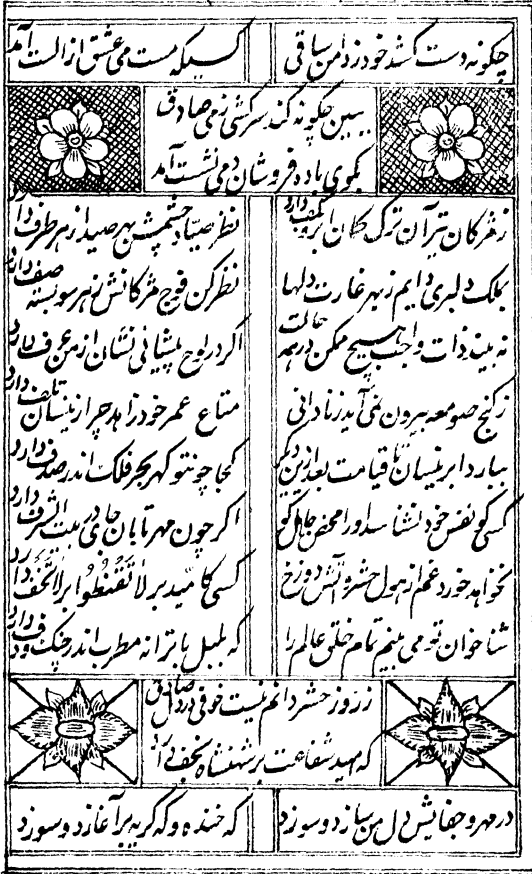 چگونه دست کشد خود ز دامن ساقی
کسیکه مست می عشق از الست آمد
ببین چگونه کند سرکشی نمی صادق
بکوی باده فروشان دمی نشست آمد
ز مژگان تیر آن ترک کمان ابرو بکف دارد
نظر صیاد چشمش بهر صید از هر طرف دارد
بملک دلبری دایم ز بهر غارت دلها
نظر کن فوج مژگانش ز هر سو بسته صف دارد
نه بیند ذات واجب هیچ ممکن در همه حالت
اگر در لوح پیشانی نشان از من عرف دارد
ز کنج صومعه بیرون نمی آید ز نادانی
متاع عمر خود زاهد چرا زینسان تلف دارد
ببارد ابر نیسان تا قیامت بعد ازین دیگر
کجا چونتو گهر بحر فلک اندر صدف دارد
کسی کو نفس خود نشناسد او را محض جاهل گو
اگر چون مهر تابان جای در بیت الشرف دارد
نخواهد خورد غم از هول حشر و آتش دوزخ
کسی کامید بر لاتقنطوا بر لاتخف دارد
ثناخوان تو می بینم تمام خلق عالم را
که بلبل با ترانه مطرب اندر چنگ و دف دارد
ز روز حشر دانم نیست خوفی در دل صادق
که امید شفاعت بر شهنشاه نجف دارد
در مهر و جفایش دل من سازد و سوزد
که خنده و که گریه بر آغازد و سوزد